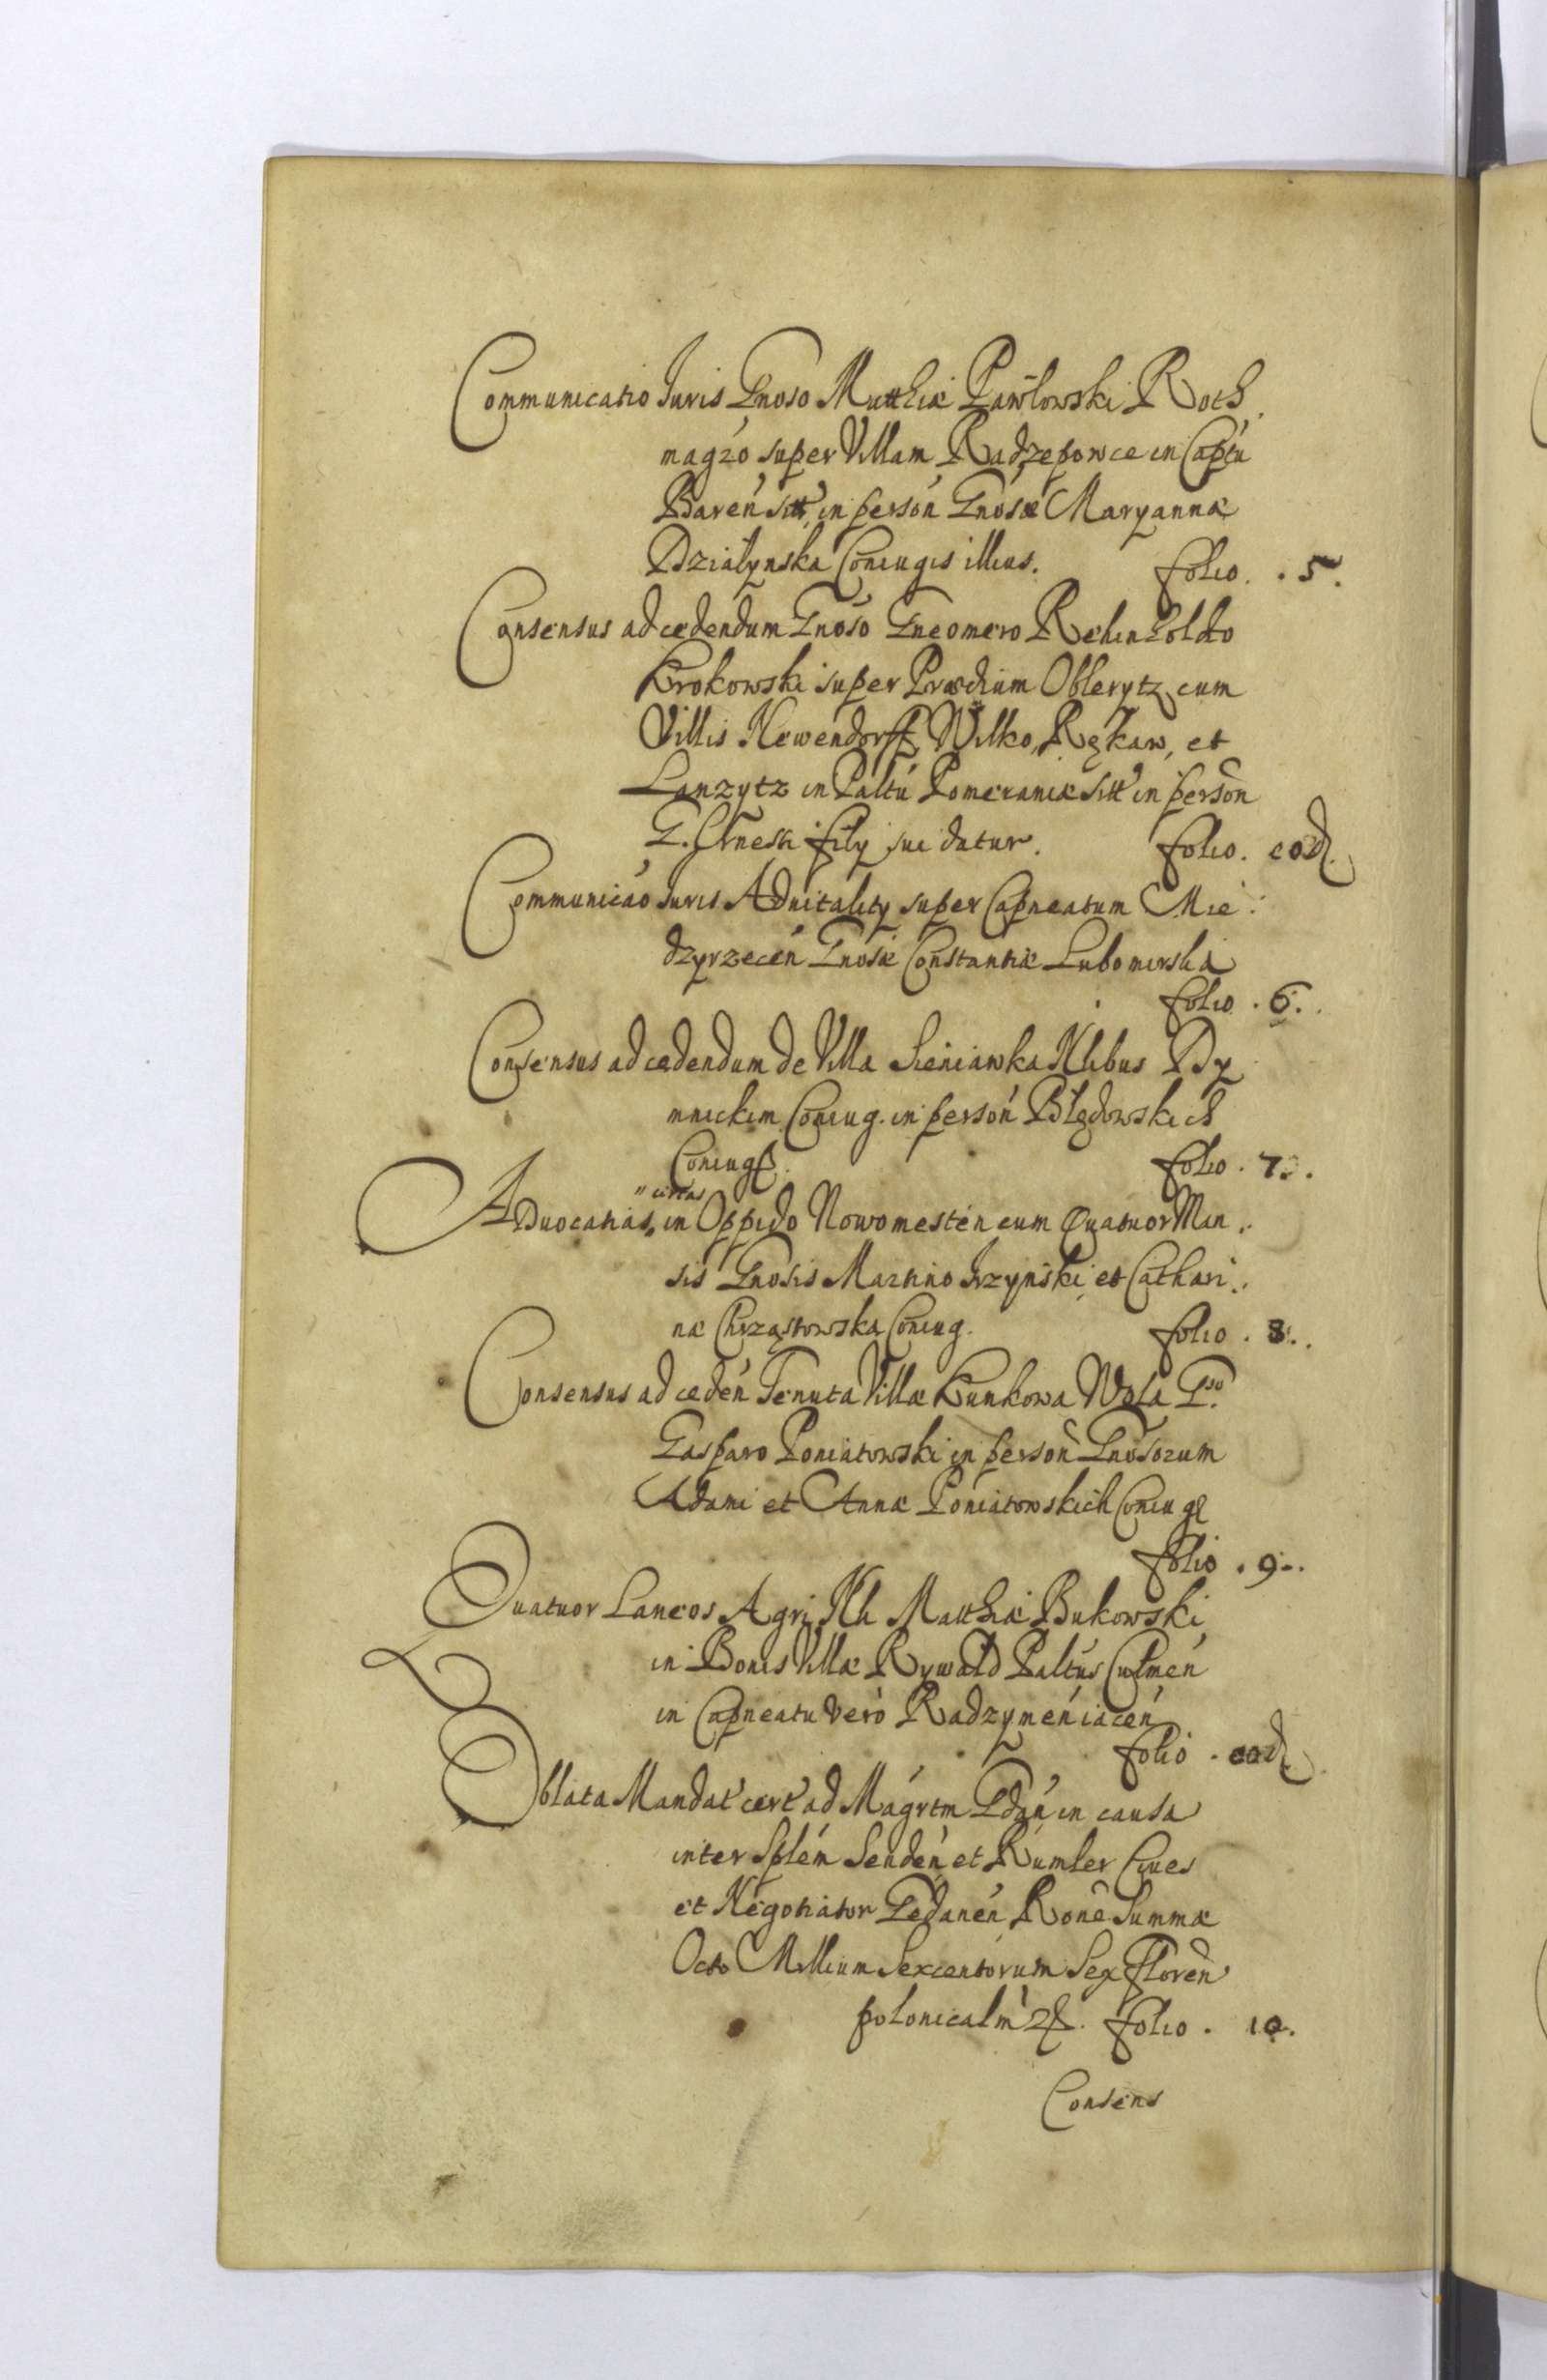 Communicatio Juris Gnoso Matthiæ Pawłowski Roth
magró super Villam Radzepowce in Capťu
Bareń sitt' in persoń Gnosæ Maryannæ
Działynska Coniugis illius. folio. . 5.
Consensus ad cedendum Gnoso Gneomero Rehinholdo
Krokowski super Prædium Oblerytz cum
Villis Newendorff, Wilko, Rękaw, et
Lanzytz in Paltú Pomeraniæ sitt' in persoñ
G. Ernesti filÿ sui datur. folio. eod.
Communicáo Juris Aduitalitÿ super Capneatum Mie:
dzyrzeceń Gnosæ Constantiæ Lubomirska
folio . 6.
Consensus ad cedendum de Villa Sieniawka Nlibus Dy
mnickim Coniug. in persoń Błędowskich
Coniug. folio . 7.
" certas
Aduocatias, in Oppido Nowomesteń cum Quatuor Man:
sis Gnosis Martino Jrzyński et Cathari:
næ Chrząstowska Coniug. folio . 8.
Consensus ad cedeń Tenuta Villæ Kunkowa Wola G.so
Gasparo Poniatowski in persoñ Gnosorum
Adami et Annæ Poniatowskich Coniug
folio . 9.
Quatuor Laneos Agri Nli Matthiæ Bukowski
in Bonis Villæ Rywałd Paltús Culmeń
in Capneatu vero Radzymeń iaceń
folio . eod.
Oblata Mandat' cert' ad Magrtm Gdań in causa
inter Splém Sendeń et Rumler Ciues
et Negotiator Gedaneń Roñe Summæ
Octo Millium Sexcentorum Sex Floreñ
polonicalm' folio . 10.
Consens